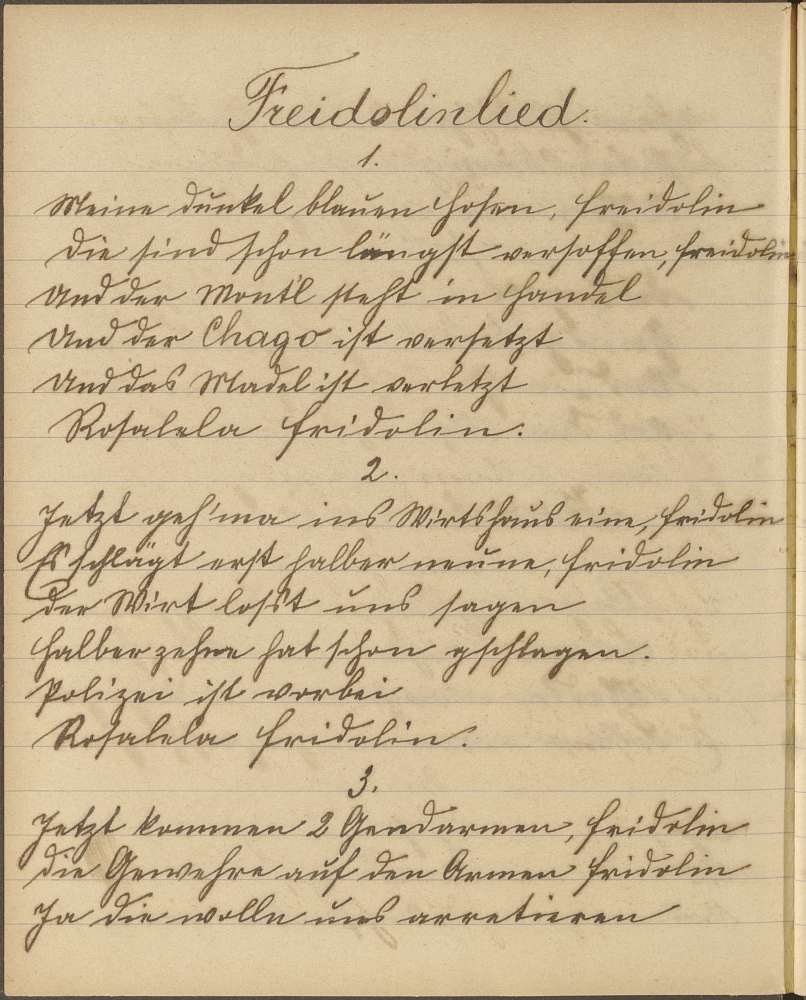 Freidolinlied.
1.
Meine dunkel blauen Hosen, freidolin
Die sind schon längst versoffen, freidolin
Und der Mont'l steht in Handel
Und der Chago ist versetzt
Und das Madel ist verletzt
Rosalela fridolin.
2.
Jetzt geh'ma ins Wirtshaus eine, fridolin
Es schlägt erst halber neune, fridolin
der Wirt losst uns sagen
halber zehne hat schon gschlagen.
Polizei ist vorbei
Rosalela fridolin.
3.
Jetzt kommen 2 Gendarmen, fridolin
die Gewehre auf den Armen fridolin
Ja die wolln uns arretieren